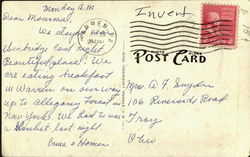 Monday A.M.
Dear Mommie,
We stayed
bridge last night
Beautiful place. We
are eating breakfast
in Warren on our way
up to Allegany Forest in
New York. We had to use
a blanket last night.
Erma & Homer
Invent
WARREN, PA
POST CARD
Mrs. A F Snyder
106 Riverside Road
Troy
Ohio